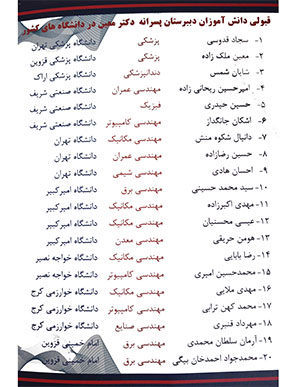 قبولی دانش آموزان دبیرستان پسرانه دکتر معین در دانشگاه های کشور
۱- سجاد قدوسی پزشکی دانشگاه پزشکی تهران
۲- معین ملک زاده پزشکی دانشگاه پزشکی قزوین
۳- شایان شمس دندانپزشکی دانشگاه پزشکی اراک
۴- امیرحسین ریحانی زاده مهندسی عمران دانشگاه صنعتی شریف
۵- حسین حیدری فیزیک دانشگاه صنعتی شریف
۶- اشکان جانگداز مهندسی کامپیوتر دانشگاه صنعتی شریف
۷- دانیال شکوه منش مهندسی مکانیک دانشگاه تهران
۸- حسین رضازاده مهندسی عمران دانشگاه تهران
۹- احسان هادی مهندسی شیمی دانشگاه تهران
۱۰- سید محمد حسینی مهندسی برق دانشگاه امیرکبیر
۱۱- مهدی اکبرزاده مهندسی مکانیک دانشگاه امیرکبیر
۱۲- عیسی محسنیان مهندسی مکانیک دانشگاه امیرکبیر
۱۳- هومن حریقی مهندسی معدن دانشگاه امیرکبیر
۱۴- رضا بابایی مهندسی مکانیک دانشگاه خواجه نصیر
۱۵- محمدحسین امیری مهندسی کامپیوتر دانشگاه خواجه نصیر
۱۶- مهدی ملایی مهندسی مکانیک دانشگاه خوارزمی کرج
۱۷- محمد کهن ترابی مهندسی کامپیوتر دانشگاه خوارزمی کرج
۱۸- مهرداد قنبری مهندسی صنایع دانشگاه خوارزمی کرج
۱۹- آرمان سلطان محمدی مهندسی برق امام خمینی قزوین
۲۰- محمدجواد احمدخان بیگی مهندسی برق امام خمینی قزوین